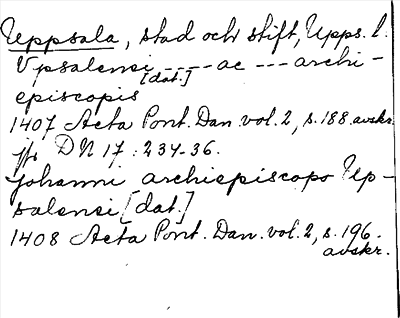 Uppsala, stad och stift, Upps. l.
Vpsalensi ---- ac --- archi-
[dat.]
episcopis
1407 Acta Pont. Dan. vol. 2, s. 188. avskr.
jfr DN 17: 234-36.
Johanni archiepiscopo Up-
salensi [dat.]
1408 Acta Pont. Dan. vol. 2, s. 196.
avskr.